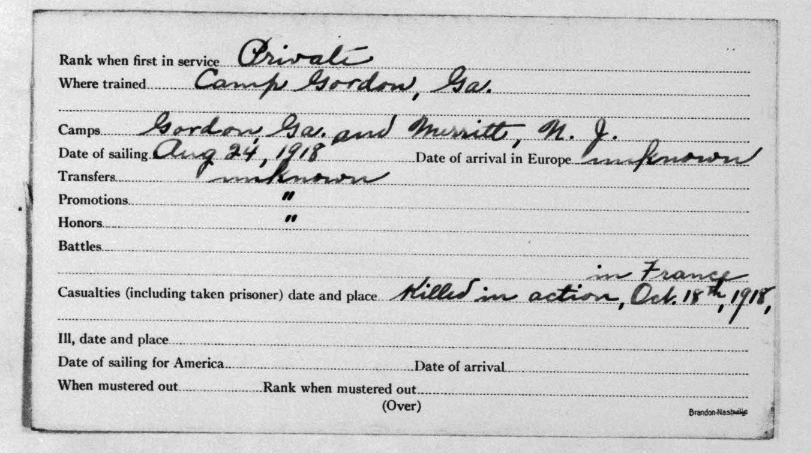 Rank when first in service Private
Where trained Camp Gordon, Ga.
Camps Gordon, Ga. and Merritt, N. J.
Date of sailing Aug 24, 1918 Date of arrival in Europe unknown
Transfers unknown
Promotions "
Honors "
Battles
in France
Casualties (including taken prisoner) date and place Killed in action, Oct. 18th, 1918,
Ill, date and place
Date of sailing for America Date of arrival
When mustered out Rank when mustered out
(Over)
Brandon-Nashville